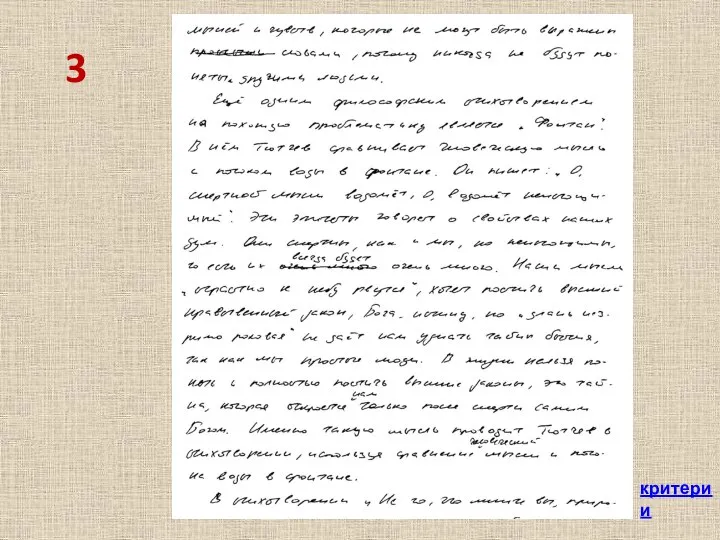 3
мыслей и чувств, которые не могут быть выражены
простыми словами, потому никогда не будут по-
няты другими людьми.
Ещё одним философским стихотворением
на похожую проблематику является „Фонтан".
В нём Тютчев сравнивает человеческую мысль
с потоком воды в фонтане. Он пишет: „О,
смертной мысли водомёт, О, водомёт неистощи-
мый". Эти эпитеты говорят о свойствах наших
дум. Они смертны, как и мы, но неистощимы,
всегда будет
то есть их очень много очень много. Наша мысль
„страстно к небу рвется", хочет постичь высший
нравственный закон, Бога, истину, но „длань нез-
римо роковая" не даёт нам узнать тайны бытия,
так как мы простые люди. В жизни нельзя по-
нять и полностью постичь высшие законы, это тай-
нам
на, которая откроется только после смерти самим
Богом. Именно такую мысль проводит Тютчев в
человеческой
стихотворении, используя сравнение мысли и пото-
ка воды в фонтане.
В стихотворении „Не то, что мните вы, приро-
критери
и